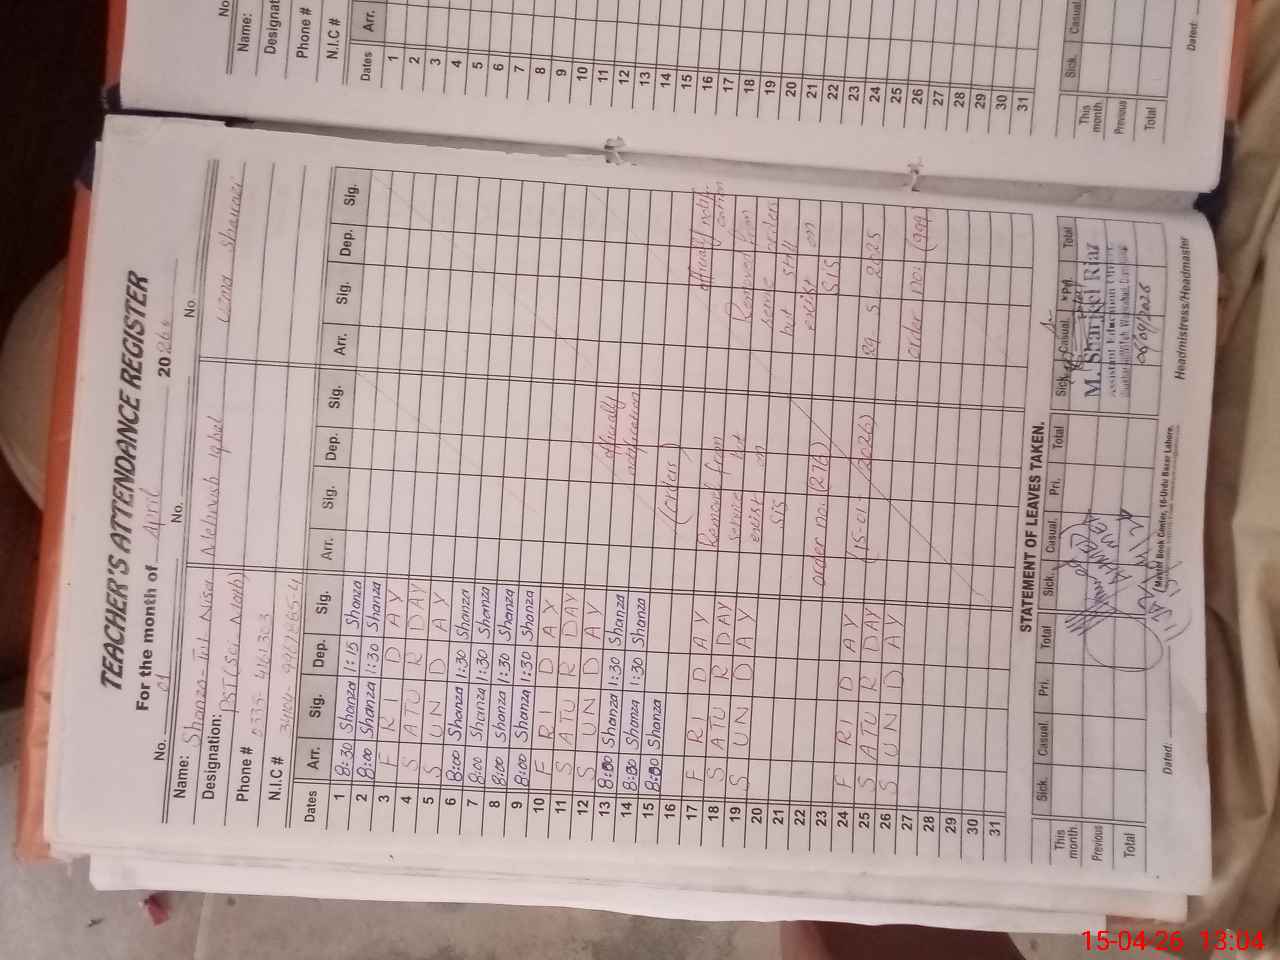 TEACHER'S ATTENDANCE REGISTER
For the month of April 2026
No. 01 No. No.
Name: Shanza-Tul-Nisa Mehwish Iqbal Uzma Shawazi
Designation: PST (Sci-Math)
Phone # 0335
N.I.C #
Dates Arr. Sig. Dep. Sig. Arr. Sig. Dep. Sig. Arr. Sig. Dep. Sig.
1 8:30 Shanza 1:15 Shanza
2 8:00 Shanza 1:30 Shanza
3 F R I D A Y
4 S A T U R D A Y
5 S U N D A Y
6 8:00 Shanza 1:30 Shanza
7 8:00 Shanza 1:30 Shanza
8 8:00 Shanza 1:30 Shanza
9 8:00 Shanza 1:30 Shanza
10 F R I D A Y
11 S A T U R D A Y
12 S U N D A Y
13 8:00 Shanza 1:30 Shanza
14 8:00 Shanza 1:30 Shanza
15 8:00 Shanza 1:30 Shanza
16
17 F R I D A Y
18 S A T U R D A Y
19 S U N D A Y
20
21
22
23
24 F R I D A Y
25 S A T U R D A Y
26 S U N D A Y
27
28
29
30
31
officially
notification
(orders)
Removed from
service but
exist on
SIS
order no. (276)
(15-01-2026)
officially notifi
cation
Removed from
servic orders
but still
exist on
SIS
29 5 2025
order no. (999)
STATEMENT OF LEAVES TAKEN.
Sick. Casual. Pri. Total Sick. Casual. Pri. Total Sick. Casual. Pri. Total
This month.
Previous
Total
M. Sharjeel Riaz
Assistant Education Officer
Dated:
Headmistress/Headmaster
Book Center, 16-Urdu Bazar Lahore.
No
Name:
Designat
Phone #
N.I.C #
Dates Arr.
1
2
3
4
5
6
7
8
9
10
11
12
13
14
15
16
17
18
19
20
21
22
23
24
25
26
27
28
29
30
31
Sick. Casual
This month.
Previous
Total
Dated:
15-04-26 13:04